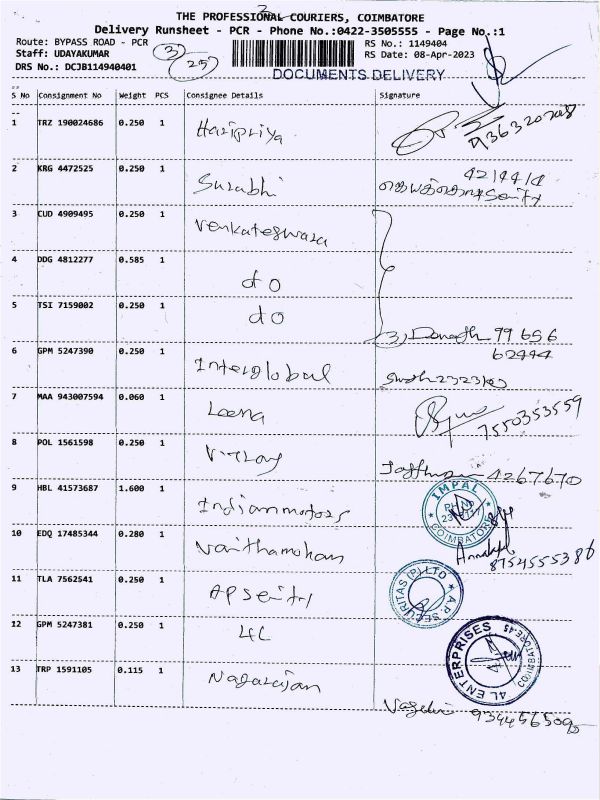 THE PROFESSIONAL COURIERS, COIMBATORE
Delivery Runsheet - PCR - Phone No.:0422-3505555 - Page No.:1
Route: BYPASS ROAD - PCR
Staff: UDAYAKUMAR
DRS No.: DCJB114940401
3
257
RS No.: 1149404
RS Date: 08-Apr-2023
DOCUMENTS DELIVERY
S No Consignment No Weight PCS Consignee Details Signature
1 TRZ 190024686 0.250 1 Haripriya
2 KRG 4472525 0.250 1 Surabhi
3 CUD 4909495 0.250 1 Venkateswara
4 DDG 4812277 0.585 1 do
5 TSI 7159002 0.250 1 do
6 GPM 5247390 0.250 1 Interglobal
7 MAA 943007594 0.060 1 Leena 7550353559
8 POL 1561598 0.250 1 4267670
9 HBL 41573687 1.600 1 Indian motors
IMPAL
COIMBATORE
10 EDQ 17485344 0.280 1 8754555386
11 TLA 7562541 0.250 1 AP Seritı
A.P. SECURITAS (P) LTD
12 GPM 5247381 0.250 1 4L
4L ENTERPRISES
COIMBATORE-45
13 TRP 1591105 0.115 1 Nagarajan